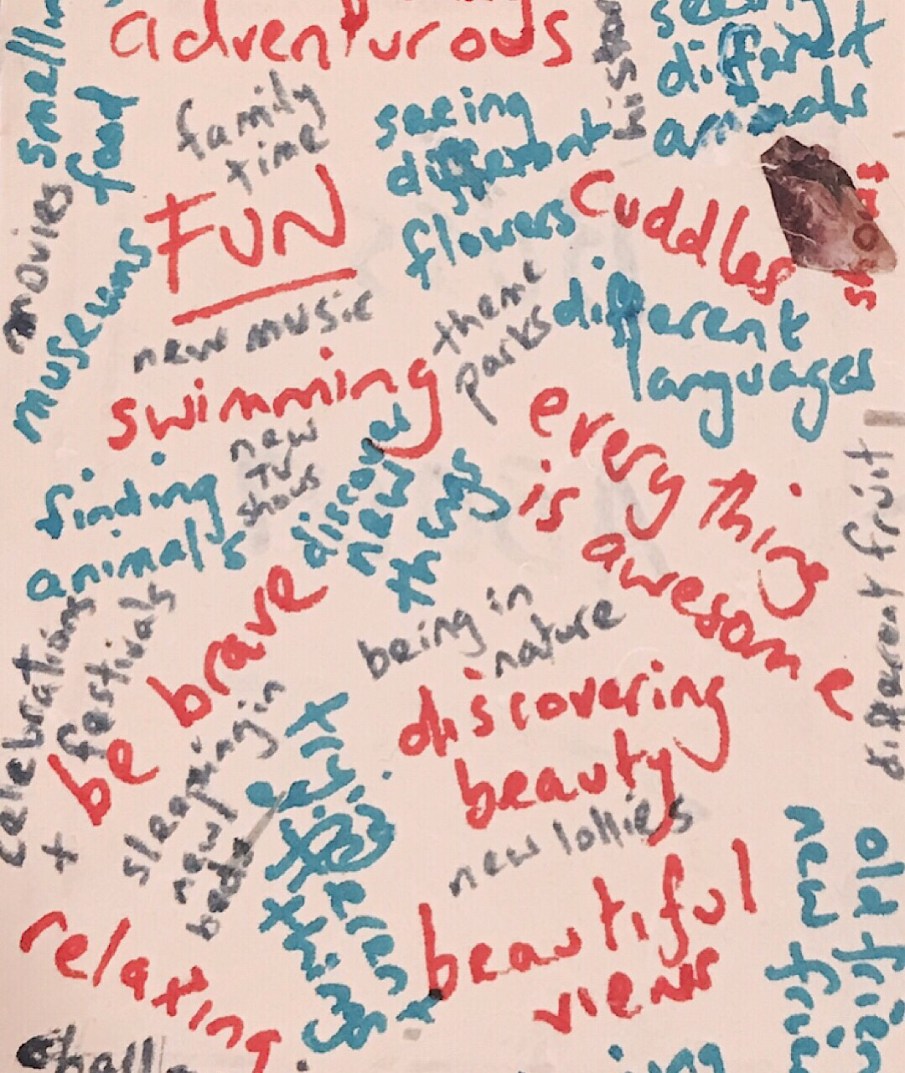 adventurous
seeing
different
animals
smelling
food
family
time
seeing
different
flowers
movies
FUN
cuddles
museums
new music
theme
parks
different
languages
swimming
new
TV
shows
discover
new
things
everything
is
awesome
finding
animals
different fruit
be brave
being in
nature
celebrations
+ festivals
discovering
beauty
sleeping in
new
beds
new lollies
beautiful
views
relaxing
new
old